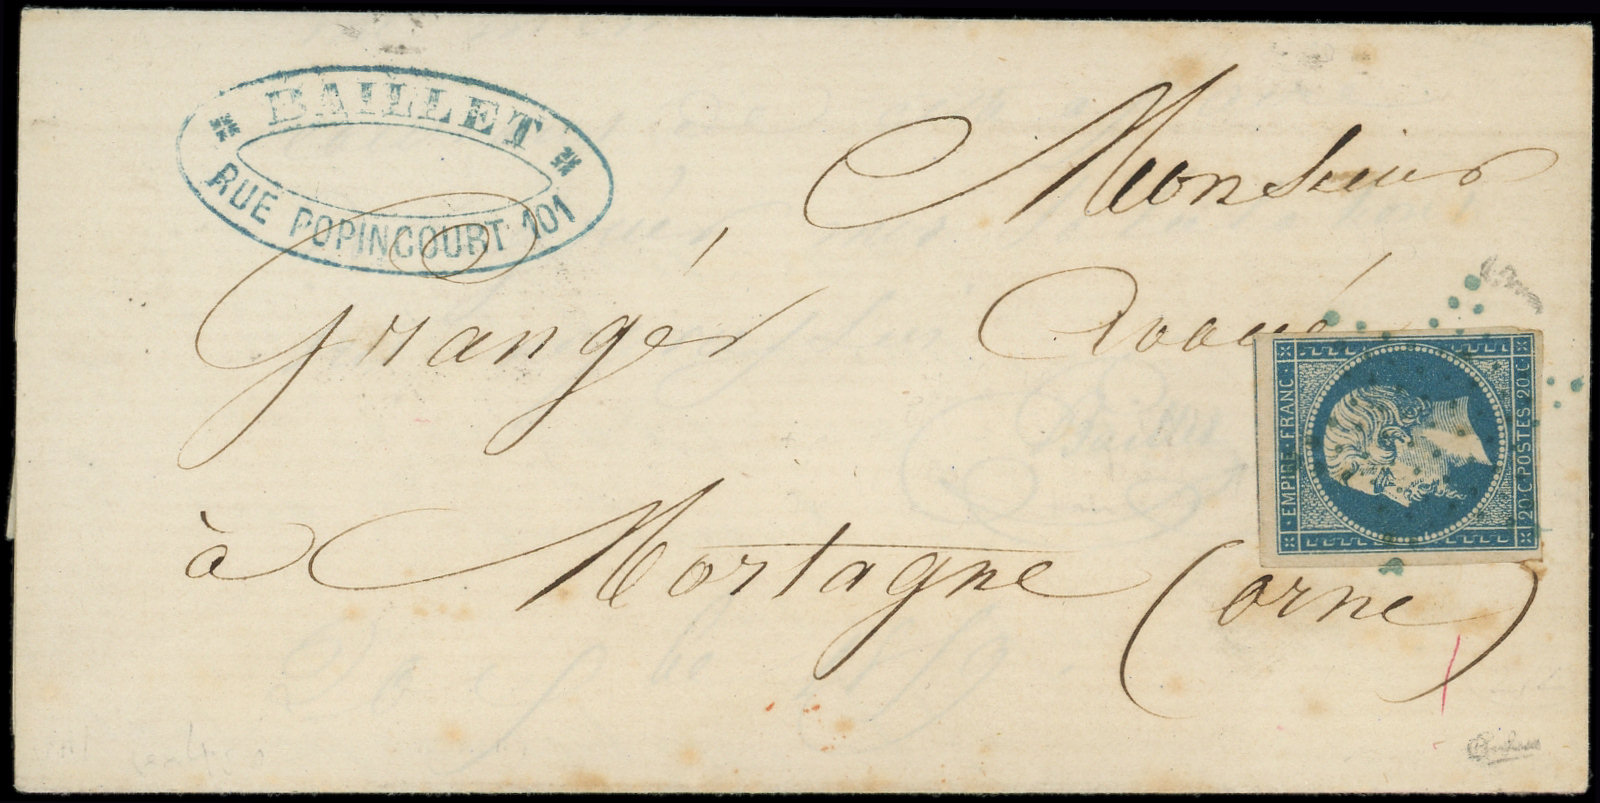 BAILLET
RUE POPINCOURT 101
Monsieur
Granger, Avoué
à Mortagne (orne)
EMPIRE FRANC
20 C POSTES 20 C